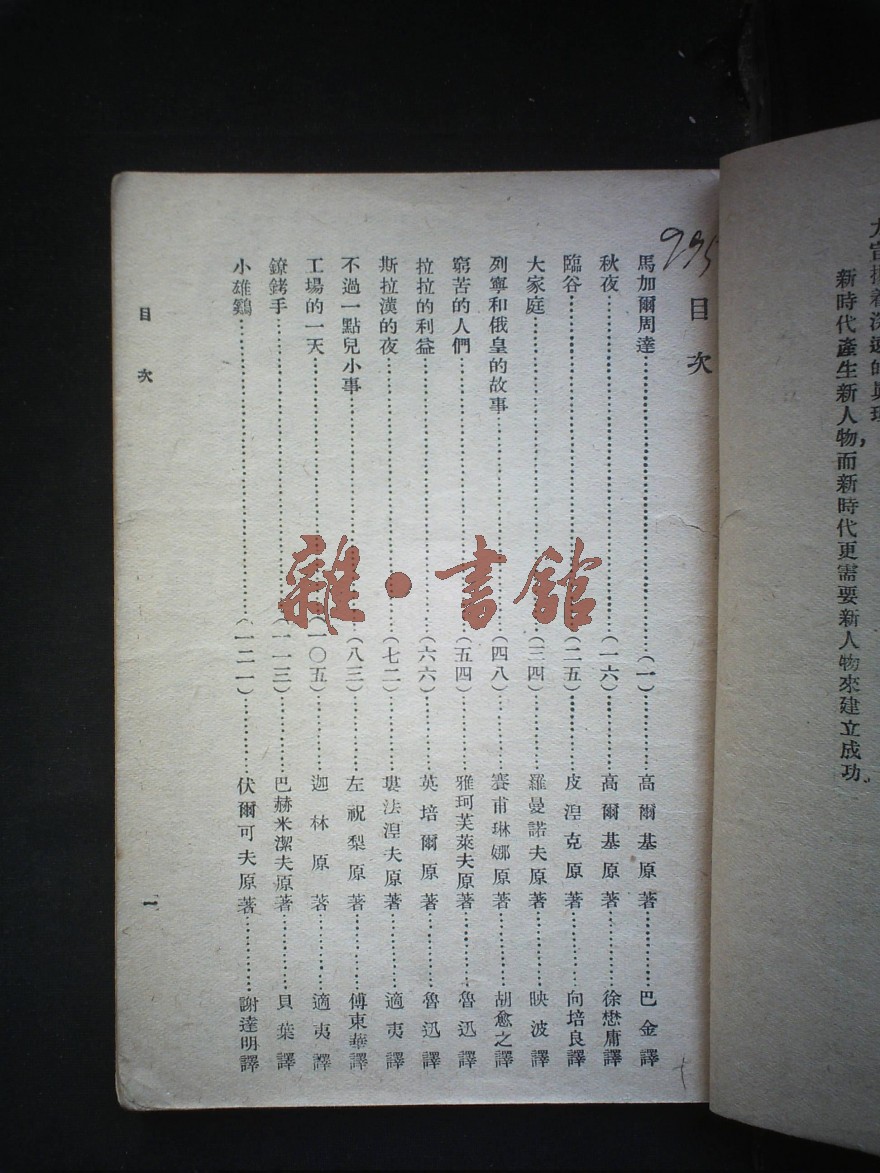 新時代產生新人物而新時代更需要新人物來建立成功。
995
目次
馬加爾周達………(一)………高爾基原著………巴金譯
秋夜………(一六)………高爾基原著………徐懋庸譯
臨谷………(二五)………皮涅克原著………向培良譯
大家庭………(三四)………羅曼諾夫原著………映波譯
列寧和俄皇的故事………(四八)………賽甫琳娜原著………胡愈之譯
窮苦的人們………(五四)………雅珂芙萊夫原著………魯迅譯
拉拉的利益………(六六)………英培爾原著………魯迅譯
斯拉漢的夜………(七二)………婁法涅夫原著………適夷譯
不過一點兒小事………(八三)………左祝梨原著………傅東華譯
工場的一天………(一〇五)………迦林原著………適夷譯
鐐銬手………(一一三)………巴赫米潔夫原著………貝葉譯
小雄鷄………(一二一)………伏爾可夫原著………謝達明譯
目次
一
雜·書館